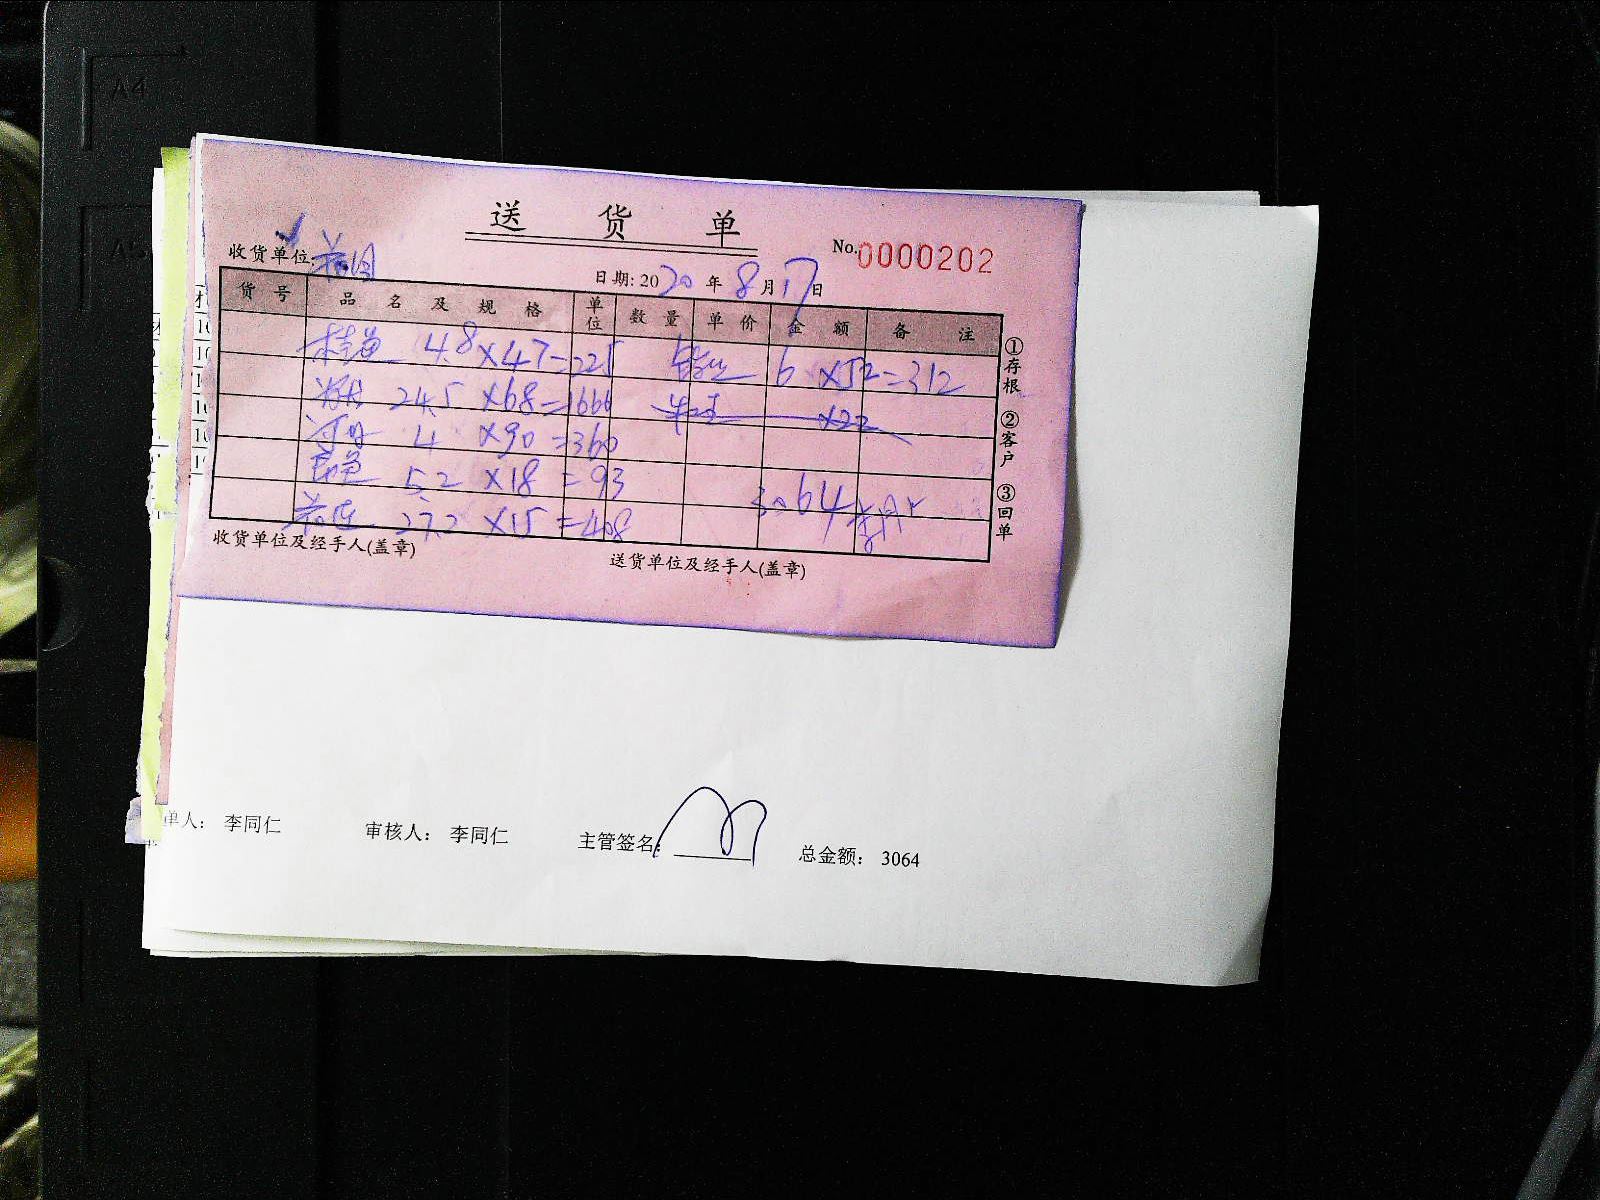 送 货 单
收货单位:
No.0000202
日期: 2020 年 8 月 17 日
货 号 品 名 及 规 格 单位 数 量 单 价 金 额 备 注
桂鱼 4.8 ×47=225 6 ×52=312
24.5 ×68=1666 ×22
4 ×90=360
5.2 ×18=93
27.2 ×15=408
3064
①存根 ②客户 ③回单
收货单位及经手人(盖章)
送货单位及经手人(盖章)
单人: 李同仁 审核人: 李同仁 主管签名: 总金额: 3064
A4